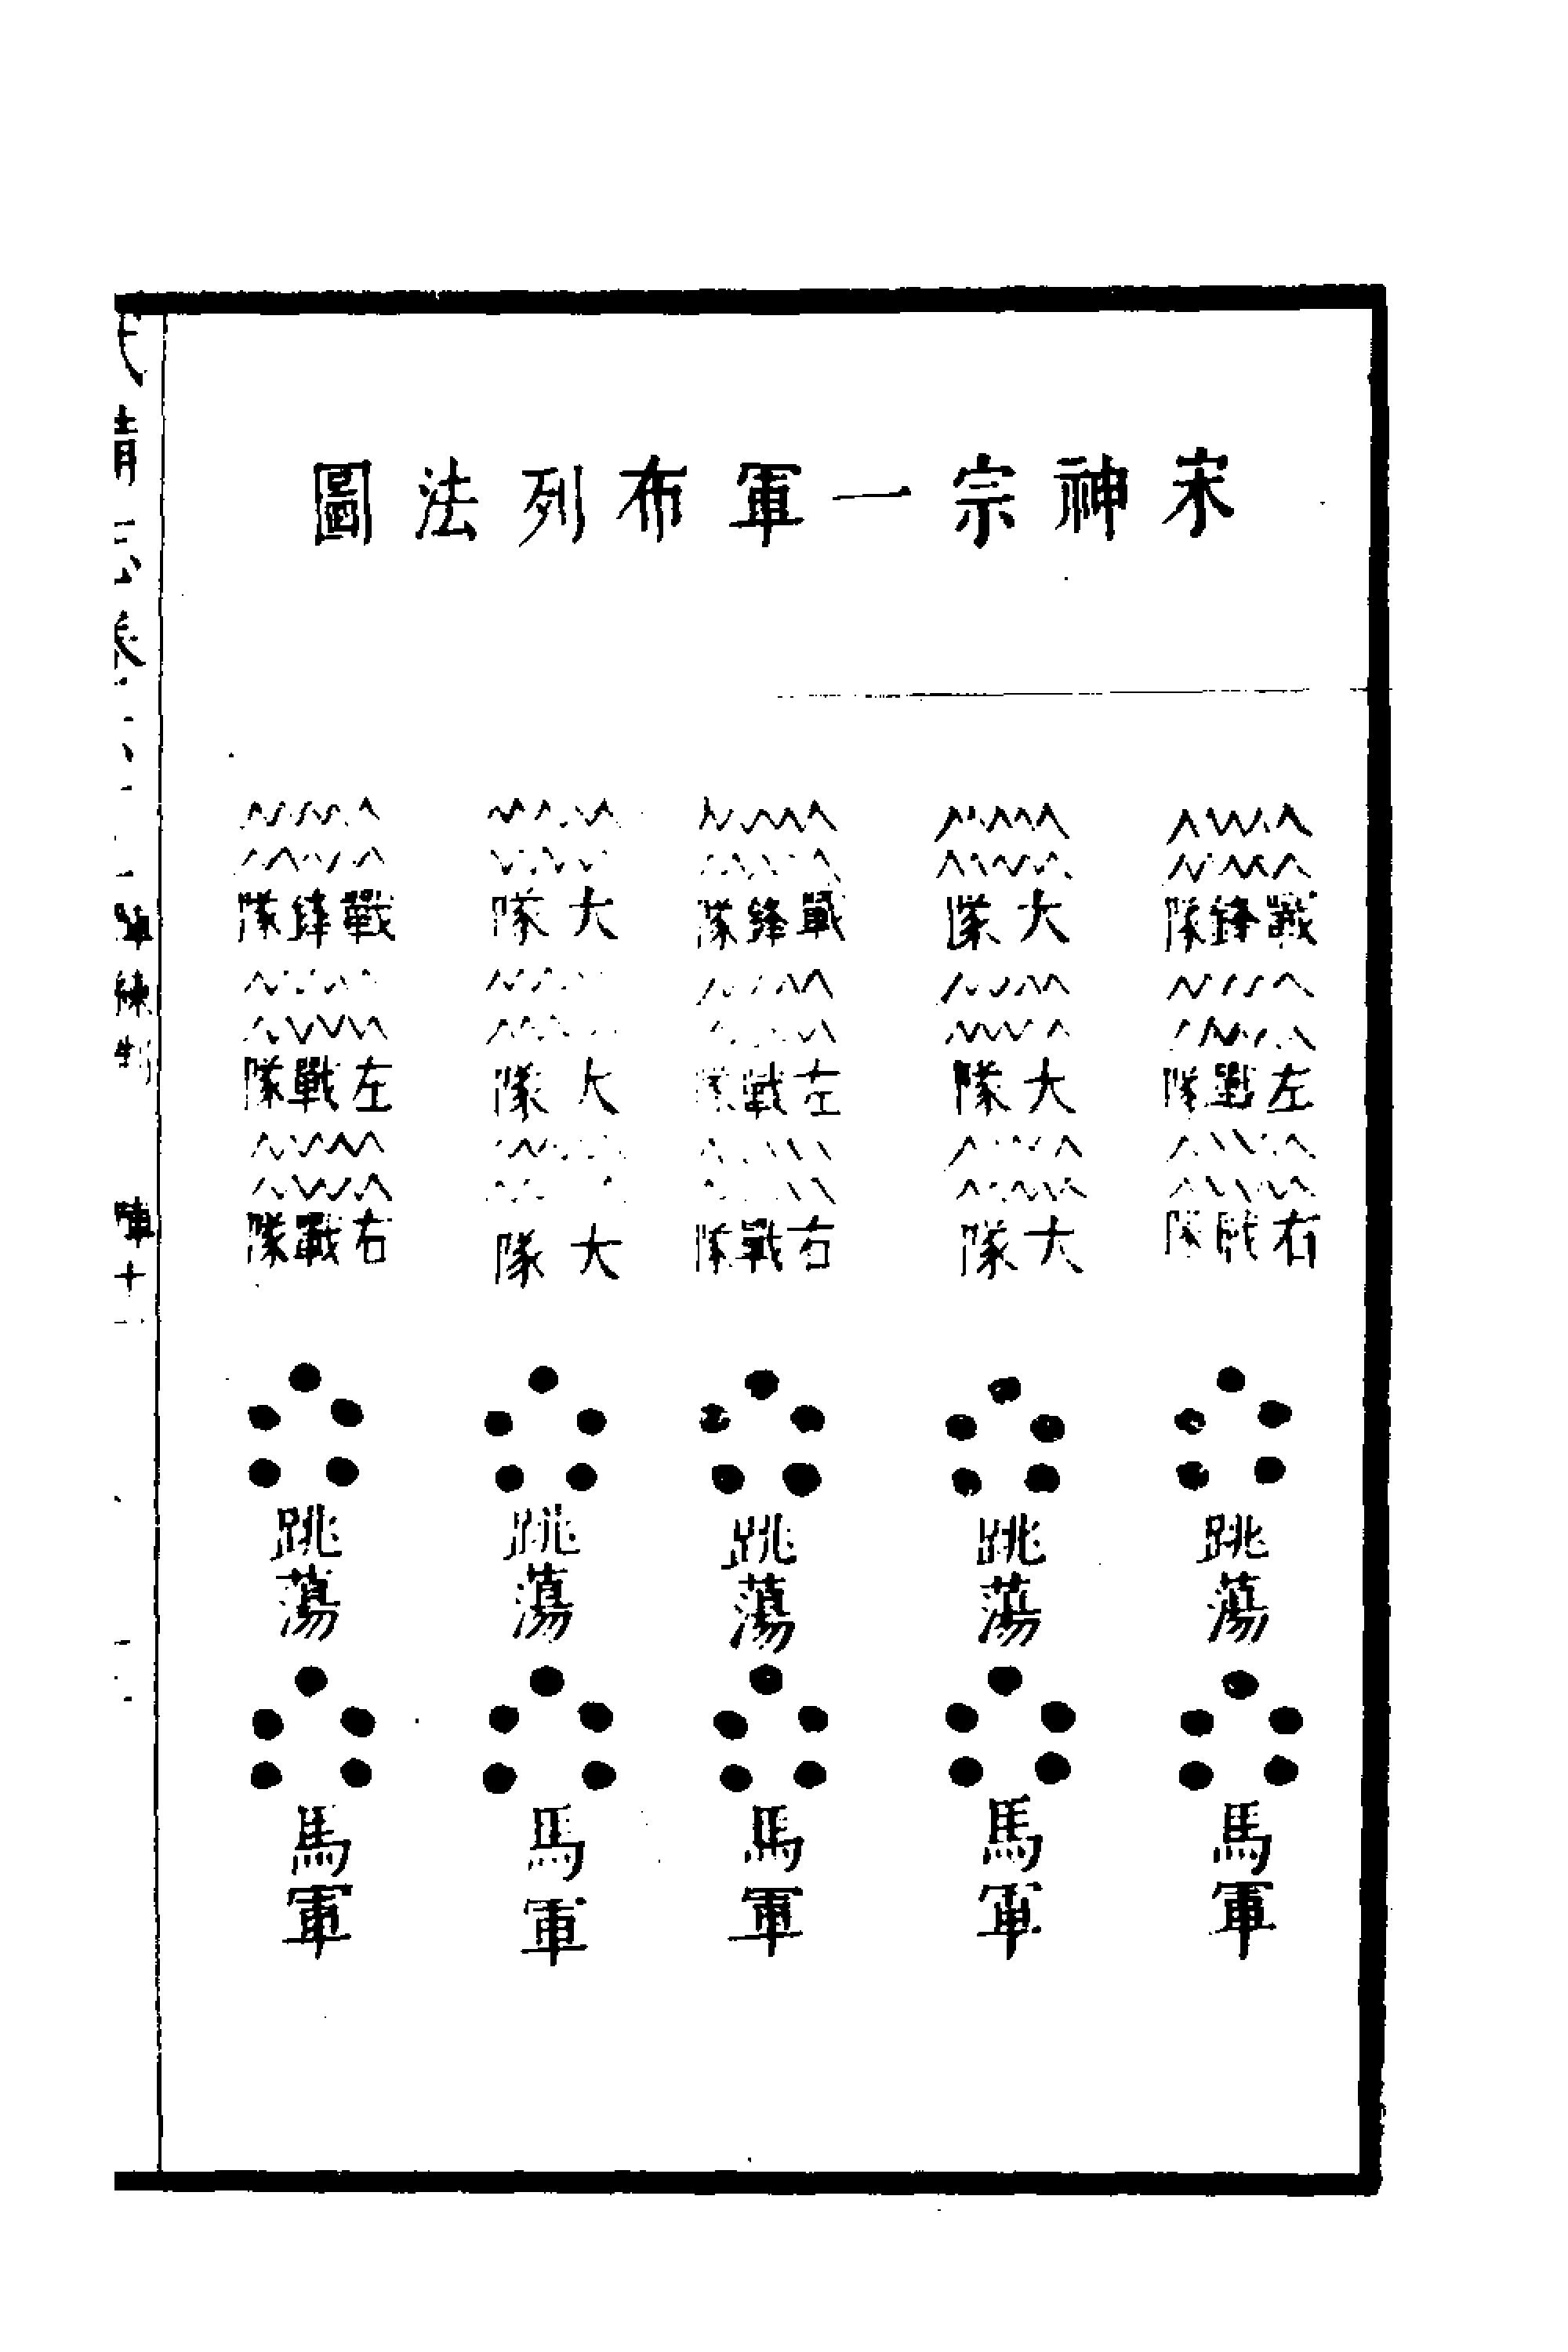 宋神宗一軍布列法圖
戰鋒隊 大隊 戰鋒隊 大隊 戰鋒隊
左戰隊 大隊 左戰隊 大隊 左戰隊
右戰隊 大隊 右戰隊 大隊 右戰隊
跳蕩 跳蕩 跳蕩 跳蕩 跳蕩
馬軍 馬軍 馬軍 馬軍 馬軍